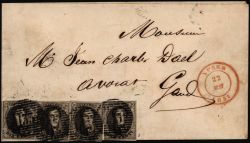 Monsieur
Mr Jean Charles Dael
avocat
Gand
22